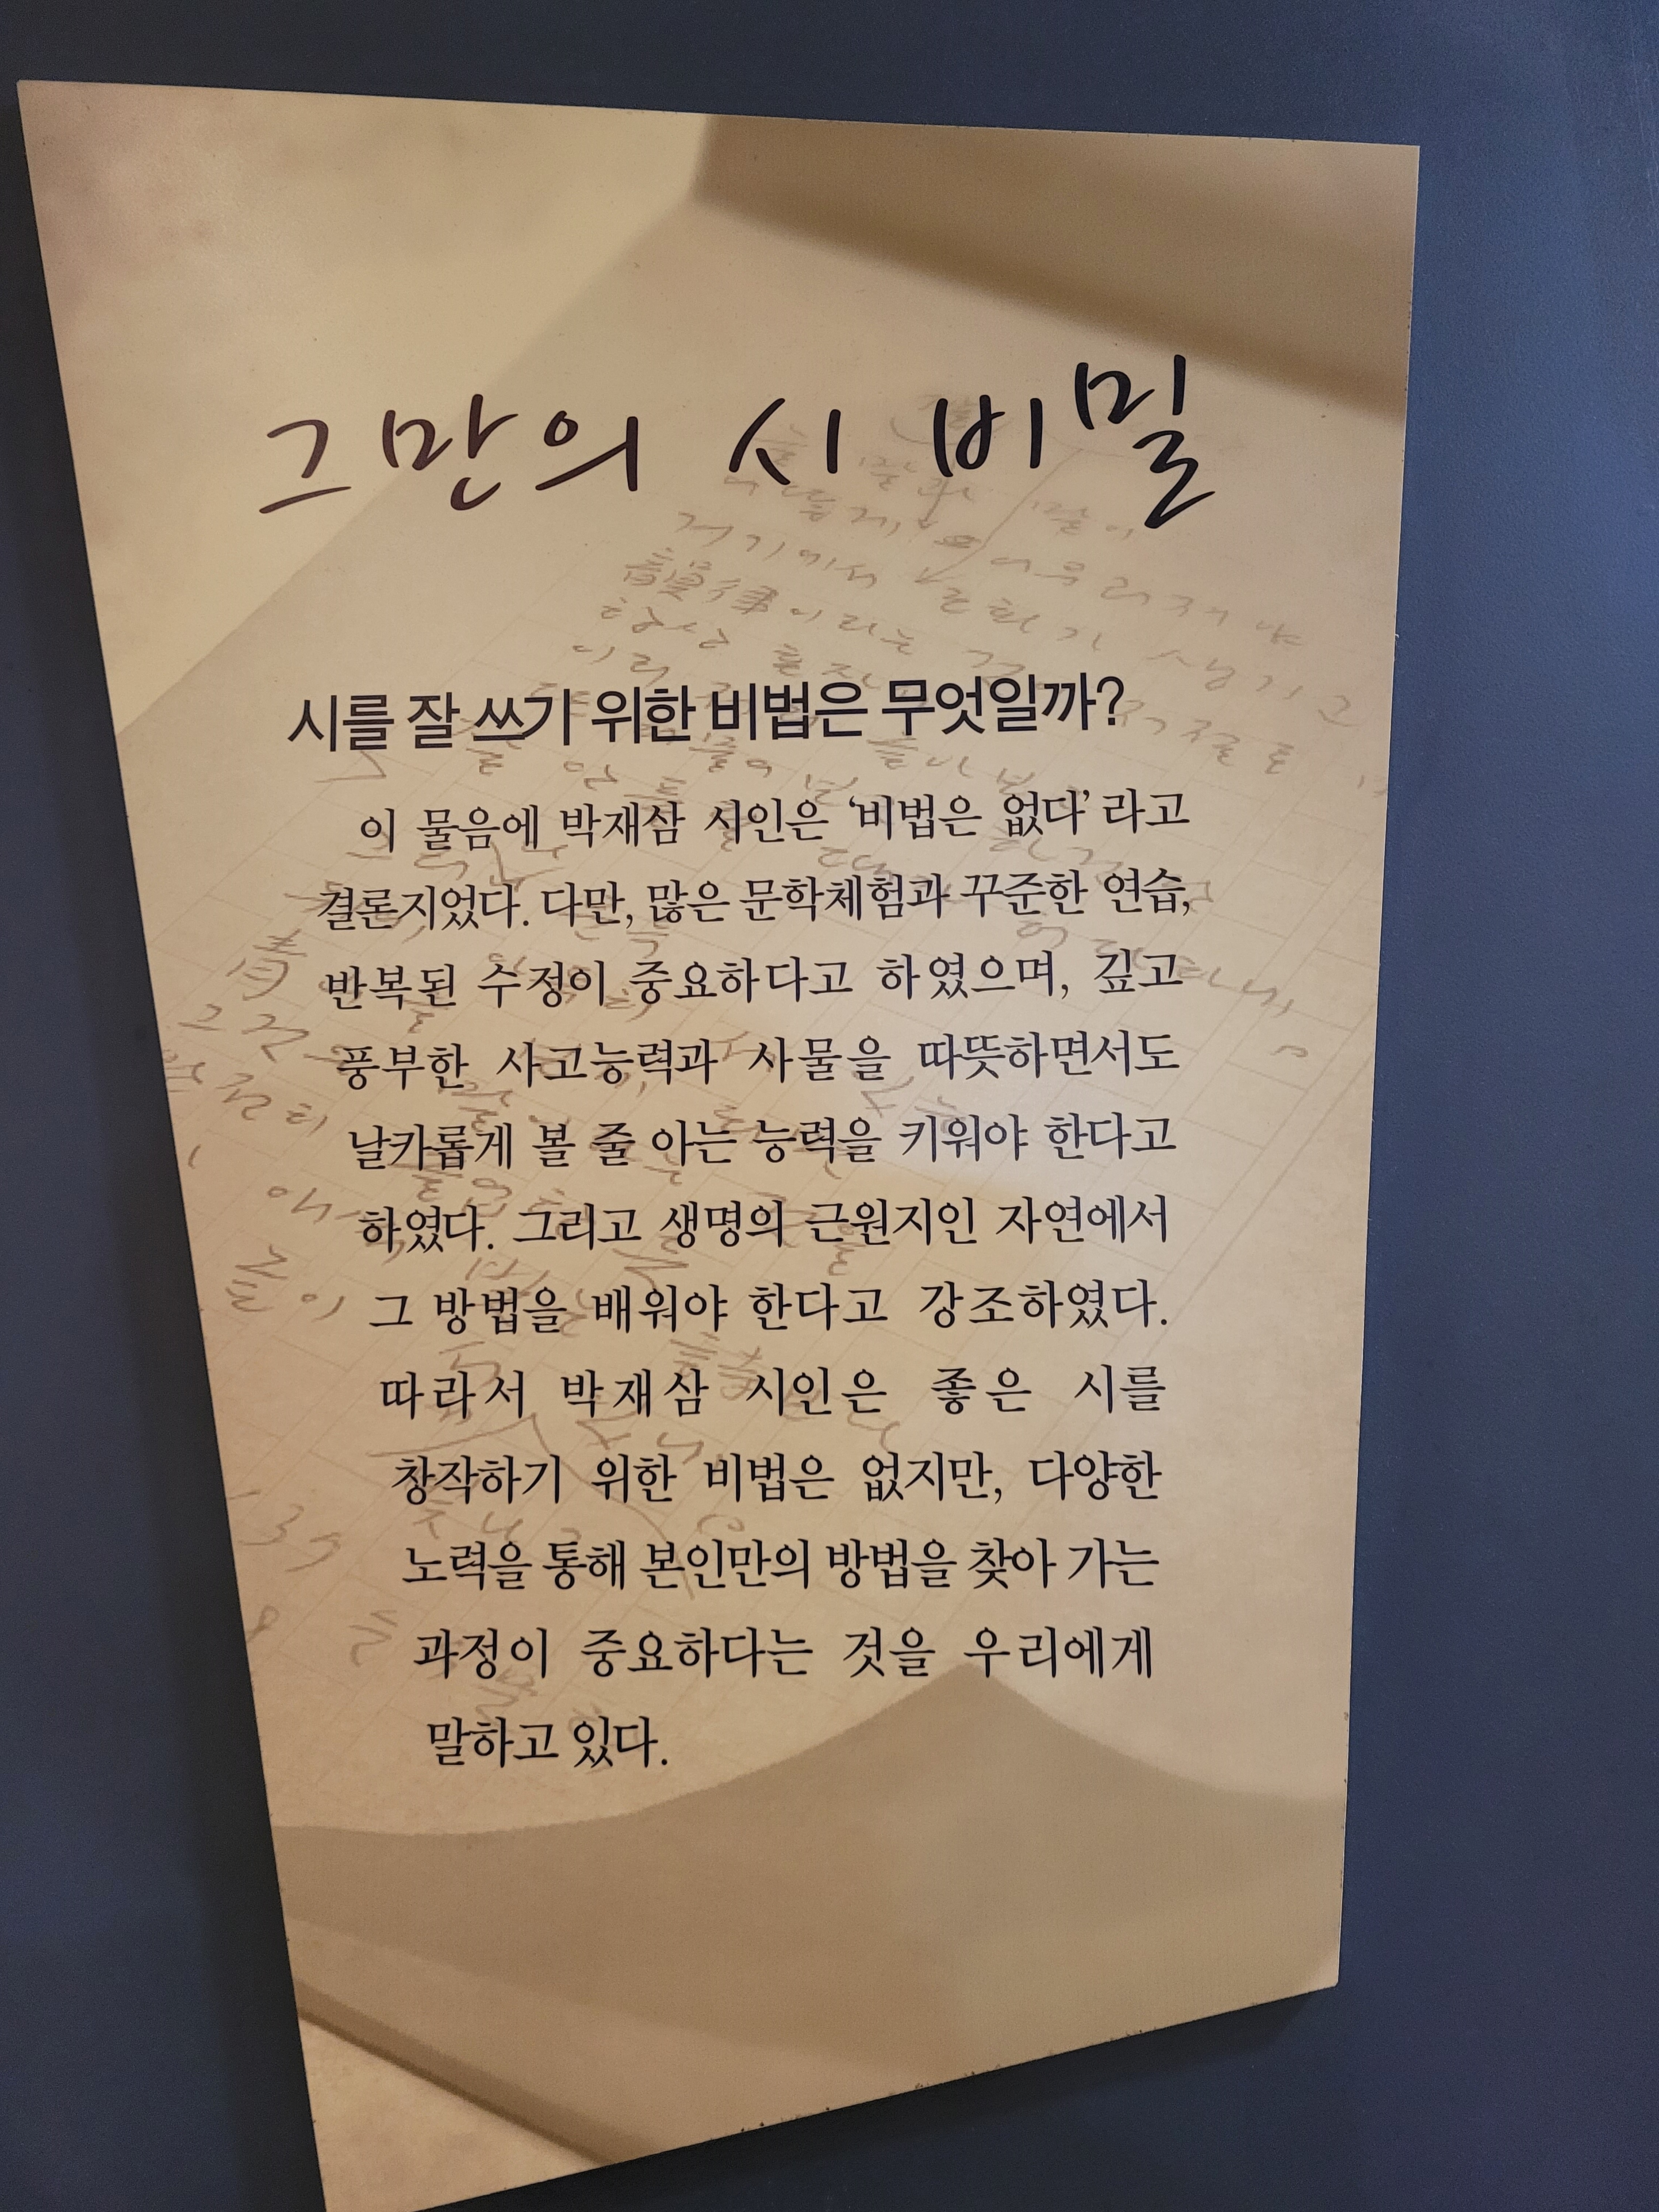 그만의 시 비밀
시를 잘 쓰기 위한 비법은 무엇일까?
이 물음에 박재삼 시인은 ‘비법은 없다’ 라고
결론지었다. 다만, 많은 문학체험과 꾸준한 연습,
반복된 수정이 중요하다고 하였으며, 깊고
풍부한 사고능력과 사물을 따뜻하면서도
날카롭게 볼 줄 아는 능력을 키워야 한다고
하였다. 그리고 생명의 근원지인 자연에서
그 방법을 배워야 한다고 강조하였다.
따라서 박재삼 시인은 좋은 시를
창작하기 위한 비법은 없지만, 다양한
노력을 통해 본인만의 방법을 찾아 가는
과정이 중요하다는 것을 우리에게
말하고 있다.